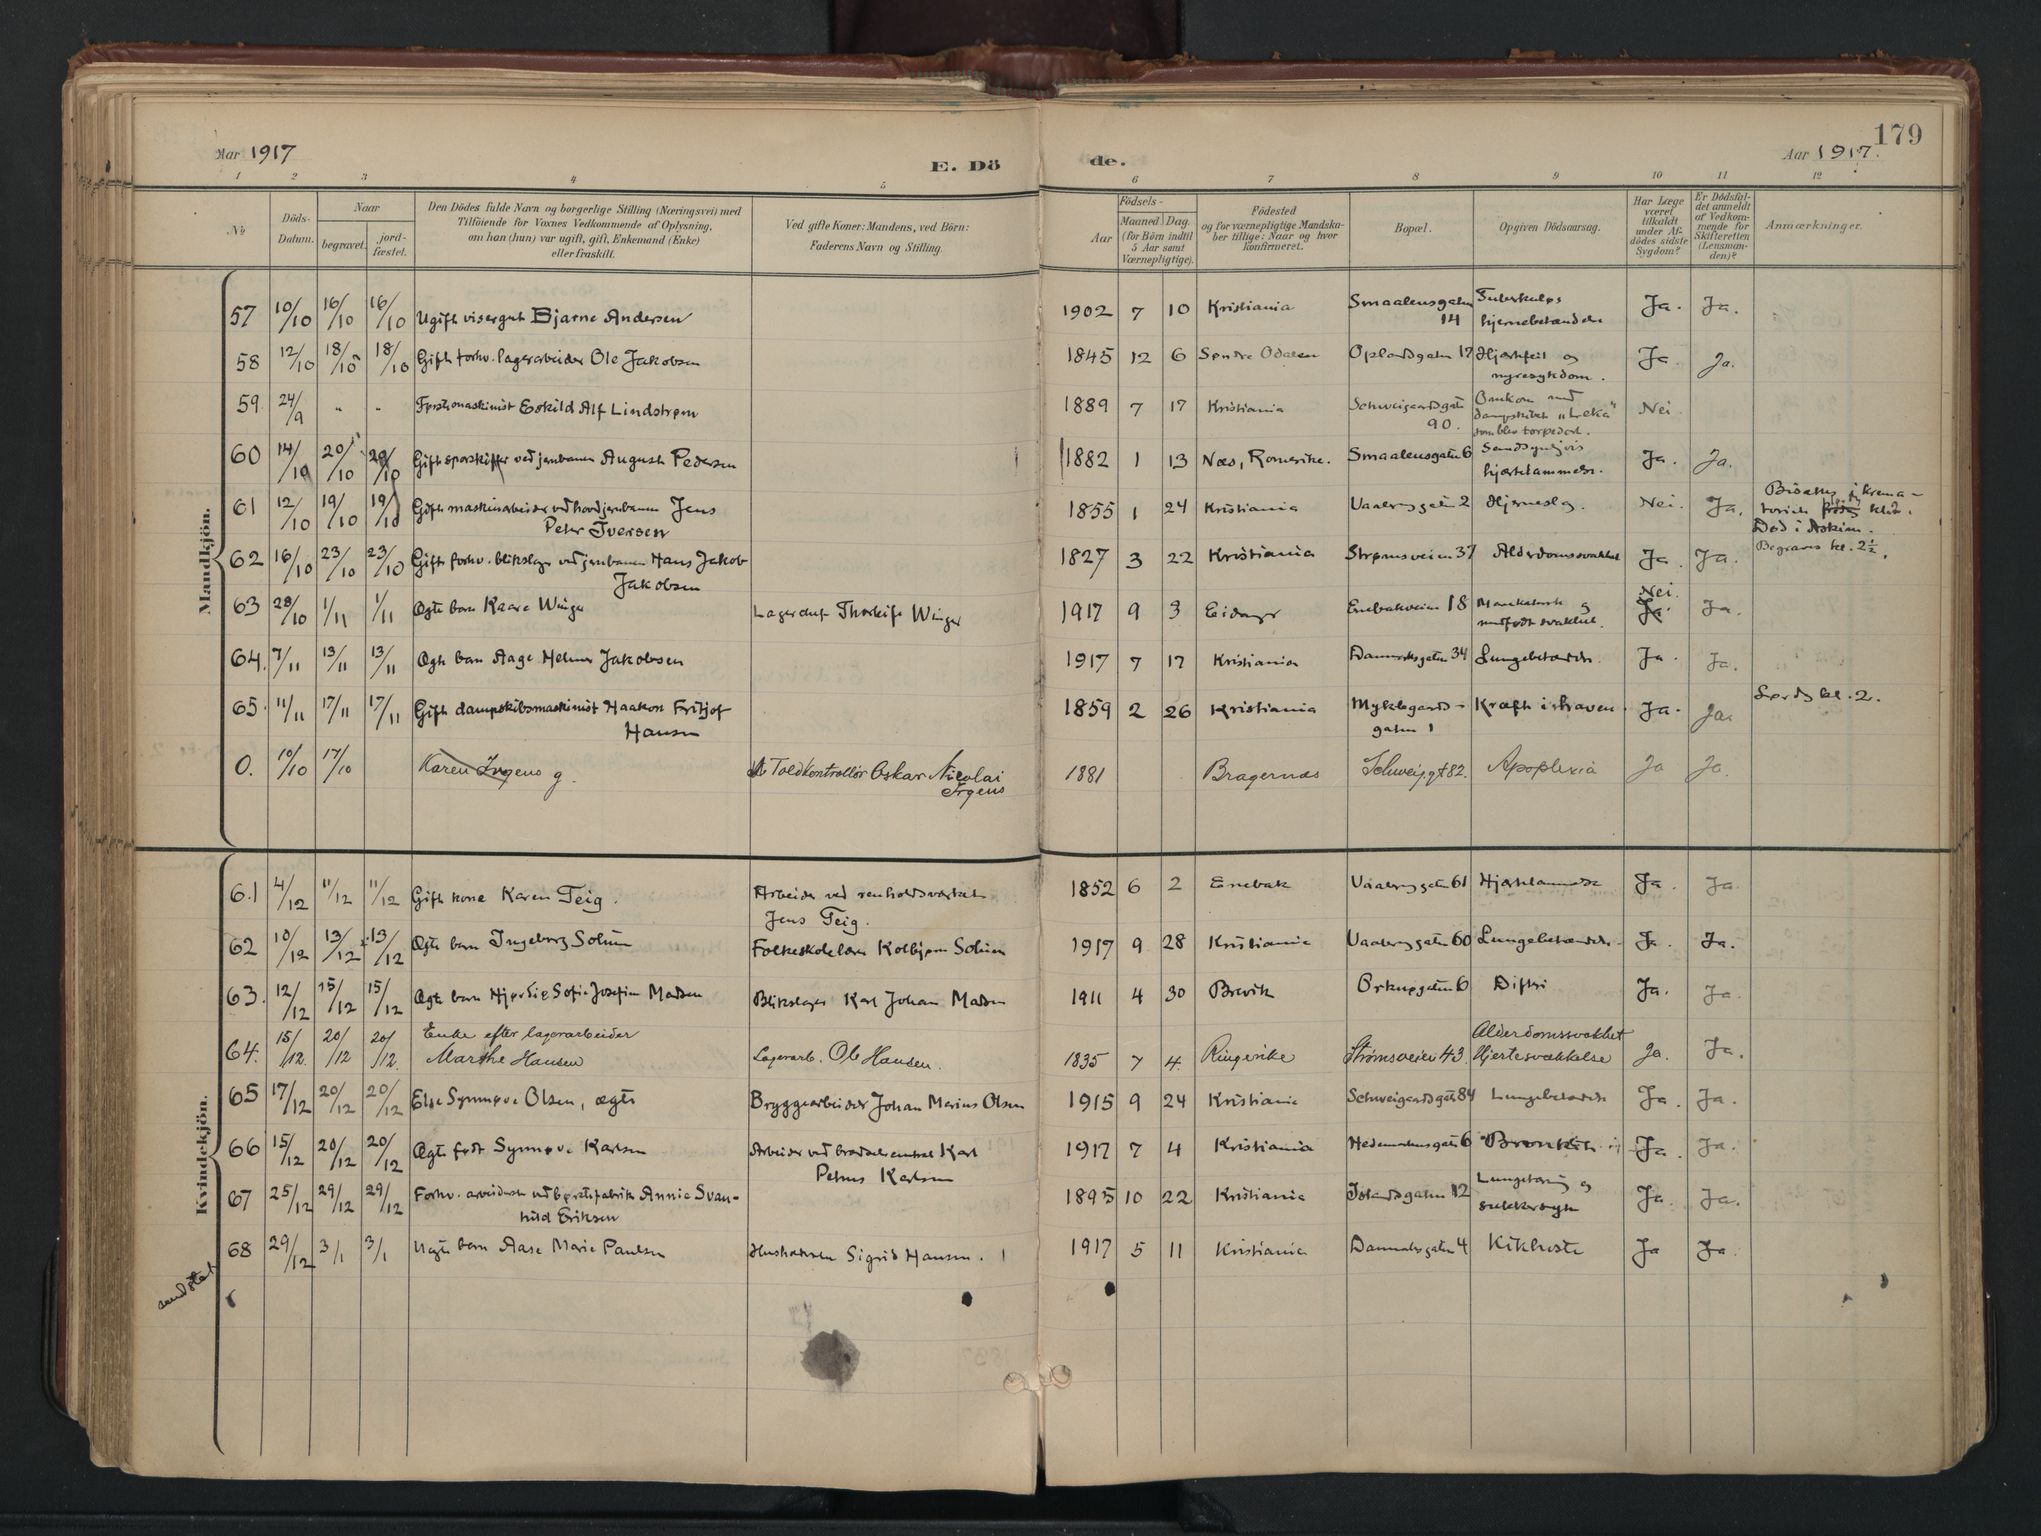 179
Aar 1917
E. Dö
de.
Aar 1917.
1 2 3 4 5 6 7 8 9 10 11 12
No
Döds-
Datum.
Naar
begravet.
jord-
fæstet.
Den Dödes fulde Navn og borgerlige Stilling (Næringsvei) med
Tilföiende for Voxnes Vedkommende af Oplysning,
om han (hun) var ugift, gift, Enkemand (Enke)
eller fraskilt.
Ved gifte Koner: Mandens, ved Börn:
Faderens Navn og Stilling.
Födsels-
Aar
Maaned Dag
(for Börn indtil
5 Aar samt
Værnepligtige).
Födested
og for værnepligtige Mandska-
ber tillige: Naar og hvor
konfirmeret.
Bopæl.
Opgiven Dödsaarsag.
Har Læge
været
tilkaldt
under Af-
dödes sidste
Sygdom?
Er Dödsfal-
det anmeldt
af Vedkom-
mende for
Skifteretten
(Lensman-
den)?
Anmærkninger.
Mandkjön.
57 10/10 16/10 16/10 Ugift visergut Bjarne Andersen 1902 7 10 Kristiania Smaalensgaten 14 Tuberkuløs hjernebetændelse Ja. Ja.
58 12/10 18/10 18/10 Gift forhv. lagerarbeider Ole Jakobsen 1845 12 6 Søndre Odalen Oplandsgaten 17 Hjertefeil og nyresykdom. Ja. Ja.
59. 24/9 " " Førstemaskinist Eskild Alf Lindstrøm 1889 7 17 Kristiania Schweigaardsgate 90. Omkom med dampskibet "Leka" som blev torpedert. Nei.
60 14/10 20/10 20/10 Gift sporskifter ved jernbanen August Pedersen 1882 1 13 Næs, Romerike. Smaalensgaten 6 Sandsynligvis hjertelammelse. Ja. Ja.
61 12/10 19/10 19/10 Gift maskinarbeider ved hovedjernbanen Jens 1855 1 24 Kristiania Vaalerenggaten 2 Hjerneslag. Nei. Ja. Bisættes i krema-
Peter Iversen toriet kl.
Død i Askim.
62 16/10 23/10 23/10 Gift forhv. blikslager ved jernbanen Hans Jakob 1827 3 22 Kristiania Strømsveien 37 Alderdomssvakhet Ja. Ja. Begraves kl. 2½.
Jakobsen
63 28/10 1/11 1/11 Ægte barn Kaare Winger Lagerchef Thorleif Winger 1917 9 3 Eidanger Enebakveien 18 og medfødt svakhet. Nei. Ja. Ja.
64. 7/11 13/11 13/11 Ægte barn Aage Helmer Jakobsen 1917 7 17 Kristiania Danmarksgaten 34 Lungebetændelse. Ja. Ja.
65. 11/11 17/11 17/11 Gift dampskibsmaskinist Haakon Fritjof 1859 2 26 Kristiania Myklegaards- Kræft i maven. Ja. Ja. kl. 2.
Hansen gaten 1
0. 10/10 17/10 Karen Irgens g. Toldkontrollör Oskar Nicolai 1881 Bragernæs Schweig.gt 82. Apoplexia Ja Ja.
Irgens
Kvindekjön.
61 4/12 11/12 11/12 Gift kone Karen Teig. Arbeider ved renholdsverket 1852 6 2 Enebak Vaalerenggaten 61 Hjertelammelse Ja. Ja.
Jens Teig.
62 10/12 13/12 13/12 Ægte barn Ingeborg Solum Folkeskolelærer Kolbjørn Solum 1917 9 28 Kristiania Vaalerenggaten 60 Lungebetændelse. Ja. Ja.
63. 12/12 15/12 15/12 Ægte barn Hjørdis Sofie Josefine Madsen Blikslager Karl Johan Madsen 1911 4 30 Brevik Orknøgaten 6 Difteri Ja. Ja.
64. 15/12. 20/12 20/12. Enke efter lagerarbeider Alderdomssvakhet
Marthe Hansen Lagerarb. Ole Hansen. 1835 7 4. Ringerike Strømsveien 43. Hjertesvækkelse Ja. Ja.
65 17/12 20/12 20/12 Else Synnøve Olsen, ægte Bryggearbeider Johan Marius Olsen 1915 9 24 Kristiania Schweigaardsgate 84 Lungebetændelse Ja. Ja.
66 15/12 20/12 20/12 Ægte født Synnøve Karlsen Arbeider ved brødcentral Karl 1917 7 4 Kristiania Hedemarksgate 6 Bronkit Ja. Ja.
Petrus Karlsen
67 25/12 29/12 29/12 Forhv. arbeiderske ved børstefabrik Annie Svan- 1895 10 22 Kristiania Islandsgaten 12 Lungetæring og Ja. Ja.
hild Eriksen sukkersyke
68 29/12 3/1 3/1 Uegte barn Aase Marie Paulsen Husholdersken Sigrid Hansen. 1917 5 11 Kristiania Danmarksgaten 4 Kikhoste Ja Ja.